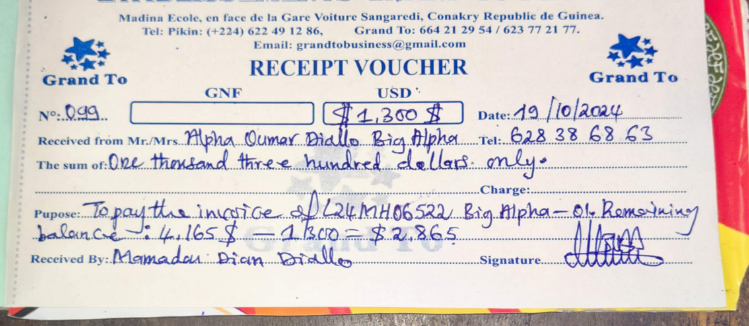 Madina Ecole, en face de la Gare Voiture Sangaredi, Conakry Republic of Guinea.
Tel: Pikin: (+224) 622 49 12 86, Grand To: 664 21 29 54 / 623 77 21 77.
Email: grandtobusiness@gmail.com
Grand To
RECEIPT VOUCHER
Grand To
GNF USD
N°: 099 $ 1,300 $ Date: 19/10/2024
Received from Mr./Mrs. Alpha Oumar Diallo Big Alpha Tel: 628 38 68 63
The sum of: One thousand three hundred dollars only.
Charge:
Pupose: To pay the invoice of L24MH06522 Big Alpha - 01. Remaining
balance : 4,165 $ - 1300 = $ 2,865
Grand To
Received By: Mamadou Dian Diallo Signature